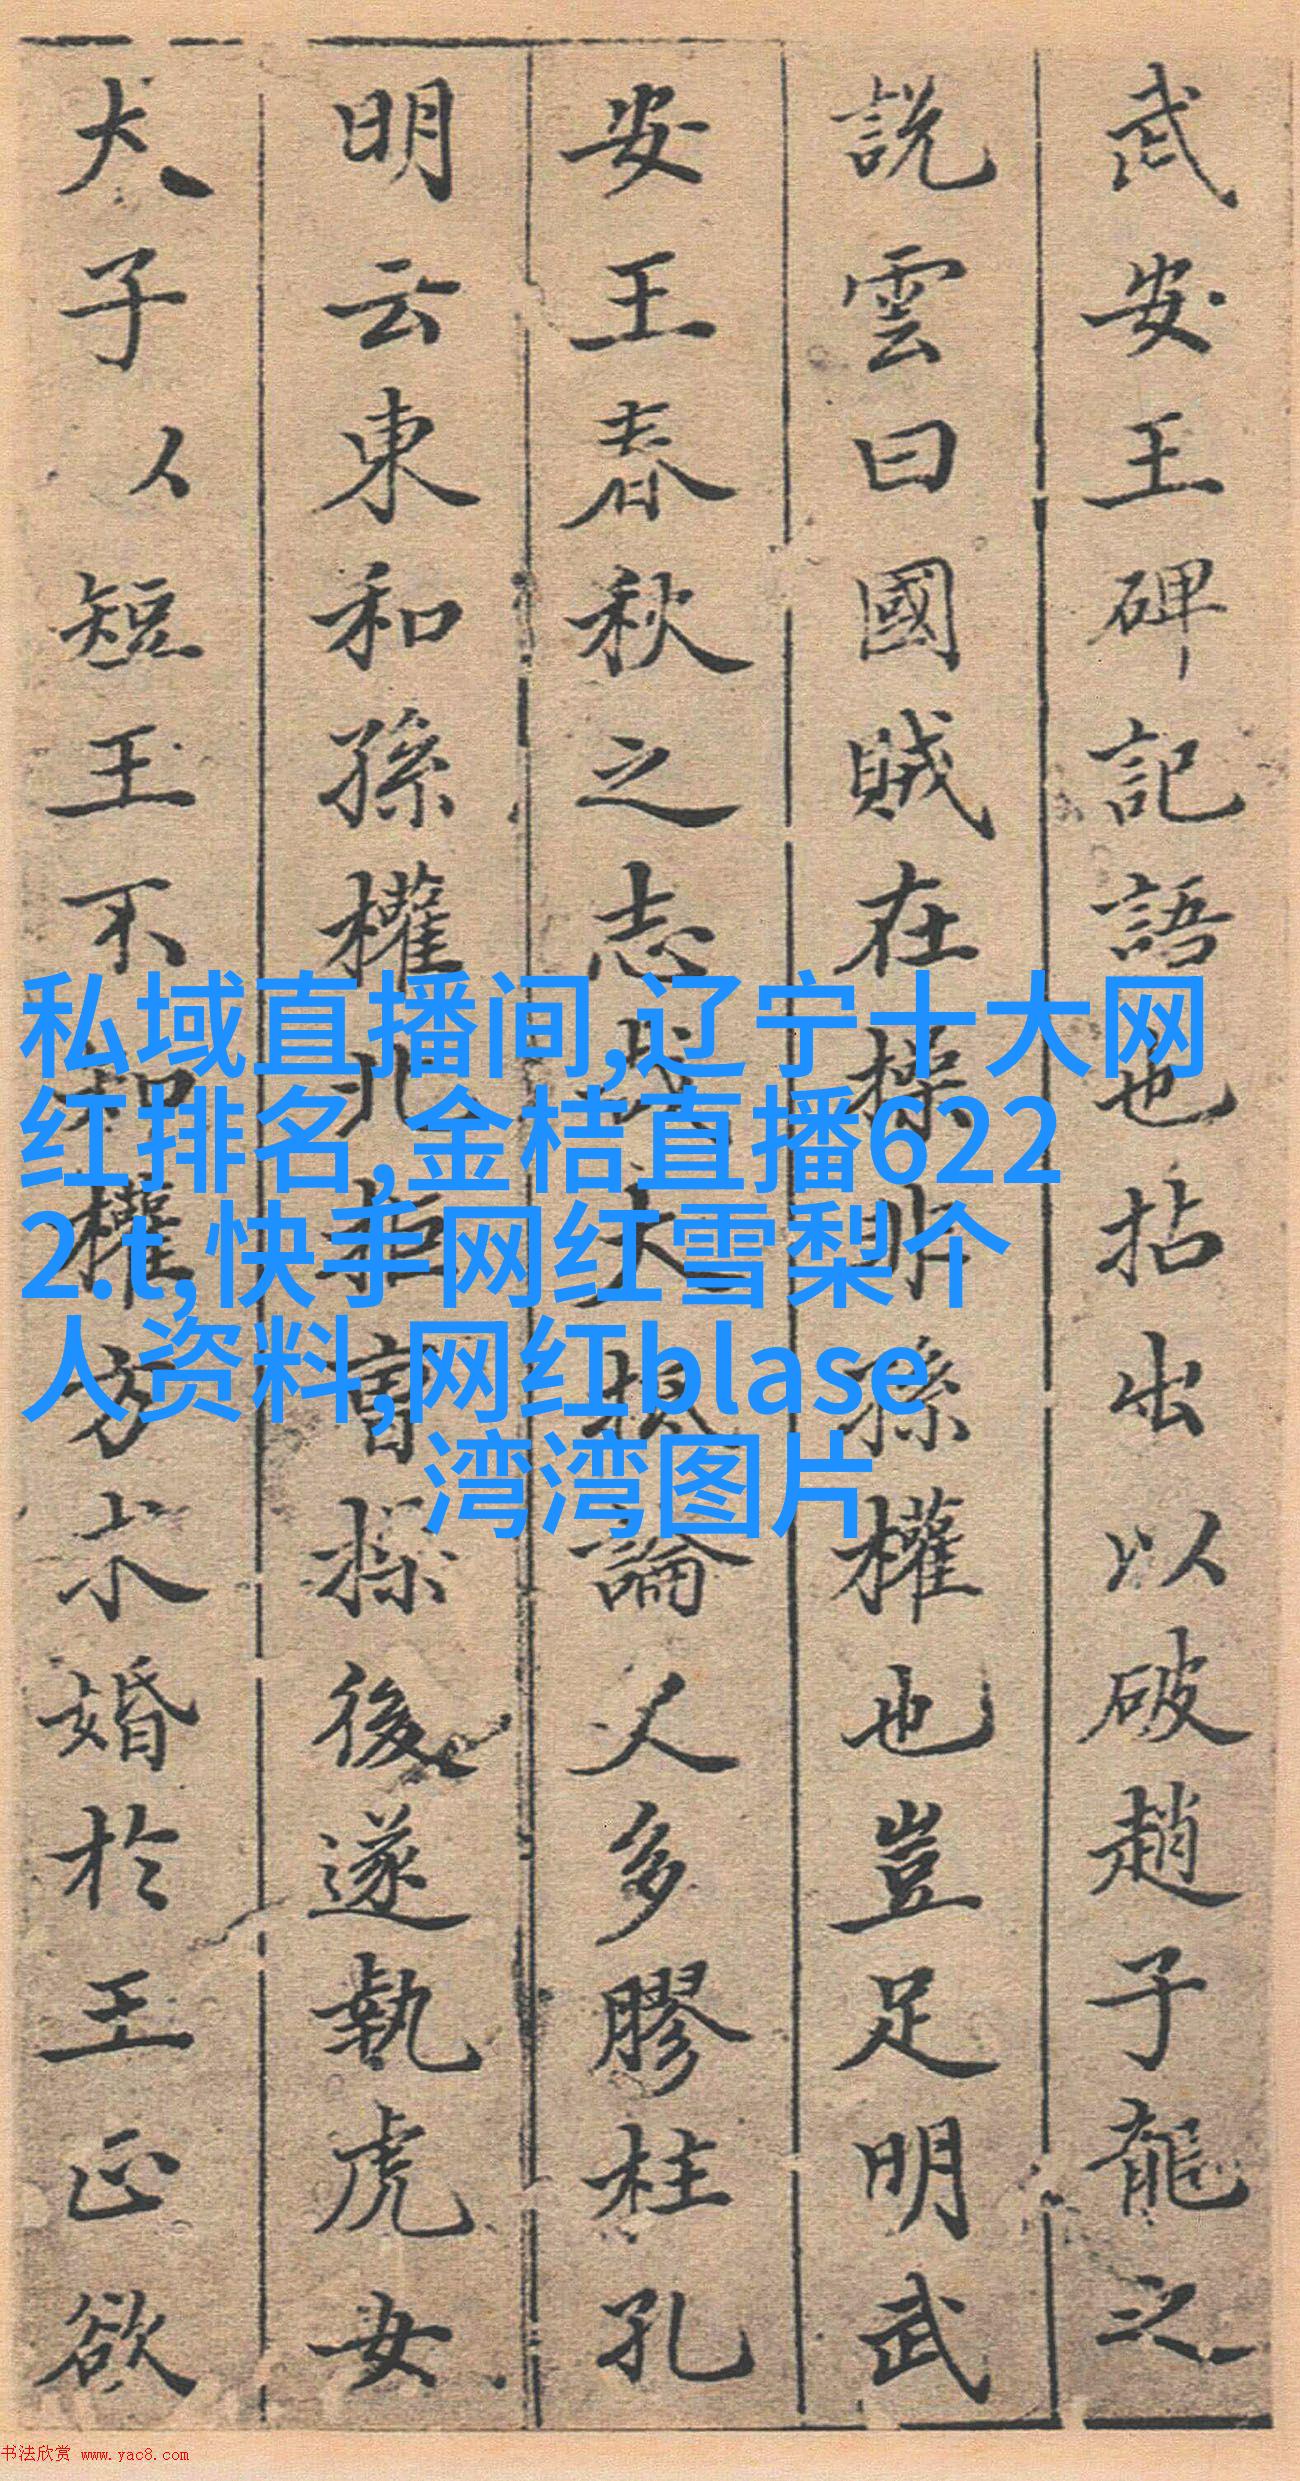 武安王碑記語也拈出以破趙子龍之
說雲曰國賊在操非孫權也豈足明武
安王春秋之志哉大論人多膠柱孔
明云東和孫權北拒曹操後遂執虎女
大子以短王不知權方求婚於王正欲
私域直播间,辽宁十大网
红排名,金桔直播622
2.t,快手网红雪梨个
人资料,网红blase
湾湾图片
书法欣赏 www.yac8.com